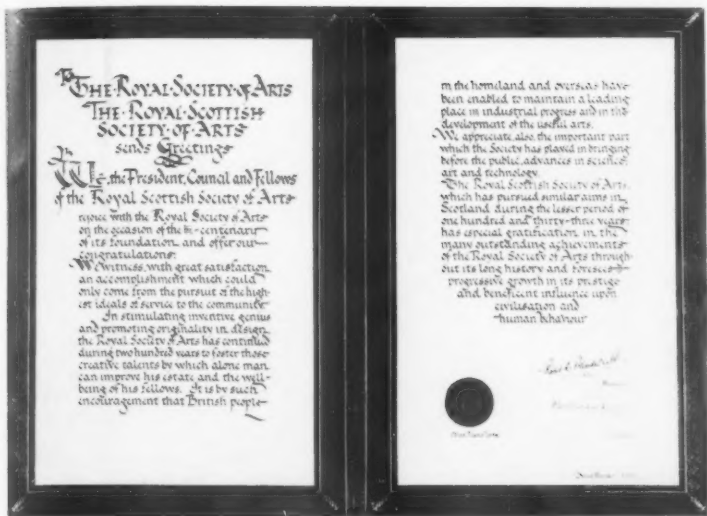 To
THE ROYAL SOCIETY OF ARTS
THE ROYAL SCOTTISH
SOCIETY OF ARTS
sends Greetings
We, the President, Council and Fellows
of the Royal Scottish Society of Arts
rejoice with the Royal Society of Arts
on the occasion of the bi-centenary
of its foundation and offer our
congratulations.
We witness, with great satisfaction,
an accomplishment which could
only come from the pursuit of the high-
est ideals of service to the community
In stimulating inventive genius
and promoting originality in design
the Royal Society of Arts has continued
during two hundred years to foster those
creative talents by which alone man
can improve his estate and the well-
being of his fellows. It is by such
encouragement that British people
in the homeland and overseas have
been enabled to maintain a leading
place in industrial progress and in the
development of the useful arts.
We appreciate, also, the important part
which the Society has played in bringing
before the public, advances in science,
art and technology.
The Royal Scottish Society of Arts,
which has pursued similar aims in
Scotland during the lesser period of
one hundred and thirty-three years
has especial gratification in the
many outstanding achievements
of the Royal Society of Arts through-
out its long history and foresees
progressive growth in its prestige
and beneficent influence upon
civilisation and
human behaviour